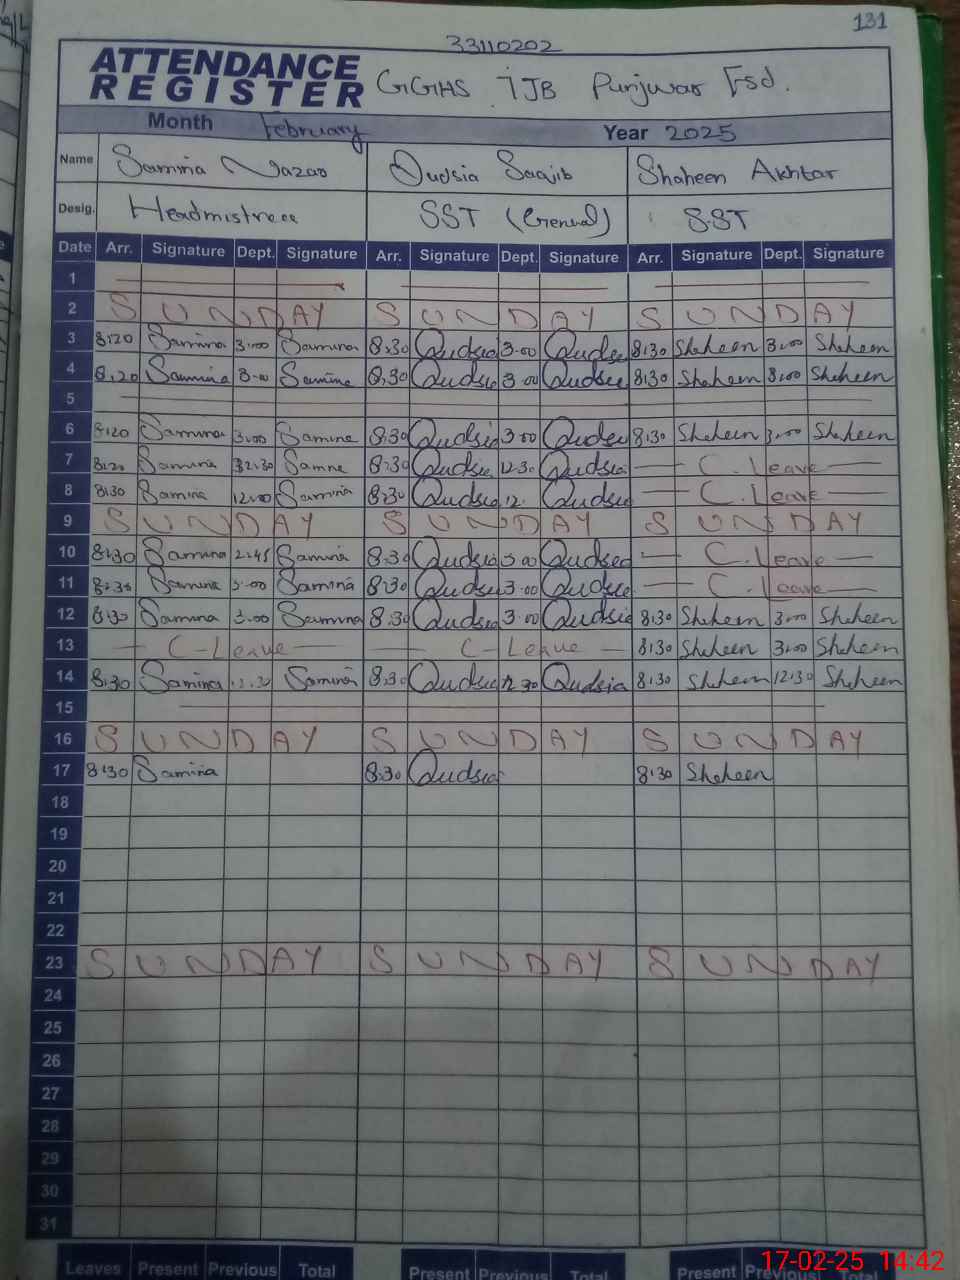 131
33110202
ATTENDANCE REGISTER GGHS 7JB Punjwar Fsd.
Month February Year 2025
Name Samina Nazar Qudsia Shaheen Akhtar
Desig. Headmistress SST (General) SST
Date Arr. Signature Dept. Signature Arr. Signature Dept. Signature Arr. Signature Dept. Signature
1
2 SUNDAY SUNDAY SUNDAY
3 8:20 Samina 3:00 Samina 8:30 Qudsia 3:00 Qudsia 8:30 Shaheen 3:00 Shaheen
4 8:20 Samina 3:00 Samina 8:30 Qudsia 3:00 Qudsia 8:30 Shaheen 3:00 Shaheen
5
6 8:20 Samina 3:00 Samina 8:30 Qudsia 3:00 Qudsia 8:30 Shaheen 3:00 Shaheen
7 8:20 Samina 12:30 Samina 8:30 Qudsia 12:30 Qudsia C. Leave
8 8:30 Samina 12:00 Samina 8:30 Qudsia 12. Qudsia C. Leave
9 SUNDAY SUNDAY SUNDAY
10 8:30 Samina 2:45 Samina 8:30 Qudsia 3:00 Qudsia C. Leave
11 8:30 Samina 3:00 Samina 8:30 Qudsia 3:00 Qudsia C. Leave
12 8:30 Samina 3:00 Samina 8:30 Qudsia 3:00 Qudsia 8:30 Shaheen 3:00 Shaheen
13 C-Leave C-Leave 8:30 Shaheen 3:00 Shaheen
14 8:30 Samina 12:30 Samina 8:30 Qudsia 12:30 Qudsia 8:30 Shaheen 12:30 Shaheen
15
16 SUNDAY SUNDAY SUNDAY
17 8:30 Samina 8:30 Qudsia 8:30 Shaheen
18
19
20
21
22
23 SUNDAY SUNDAY SUNDAY
24
25
26
27
28
29
30
31
Leaves Present Previous Total Present Previous Total Present Previous
17-02-25 14:42